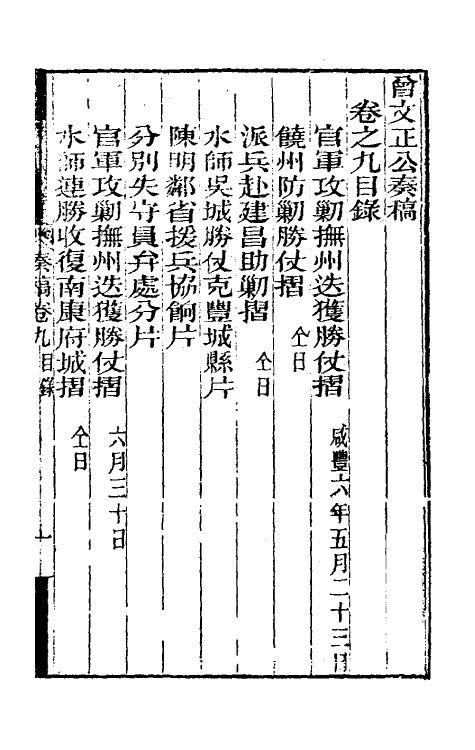 曾文正公奏稿
卷之九目錄
官軍攻勦撫州迭獲勝仗摺 咸豐六年五月二十三日
饒州防勦勝仗摺 仝日
派兵赴建昌助勦摺 仝日
水師吳城勝仗克豐城縣片
陳明鄰省援兵協餉片
分別失守員弁處分片
官軍攻勦撫州迭獲勝仗摺 六月三十日
水師連勝收復南康府城摺 仝日
奏稿卷九目錄 一